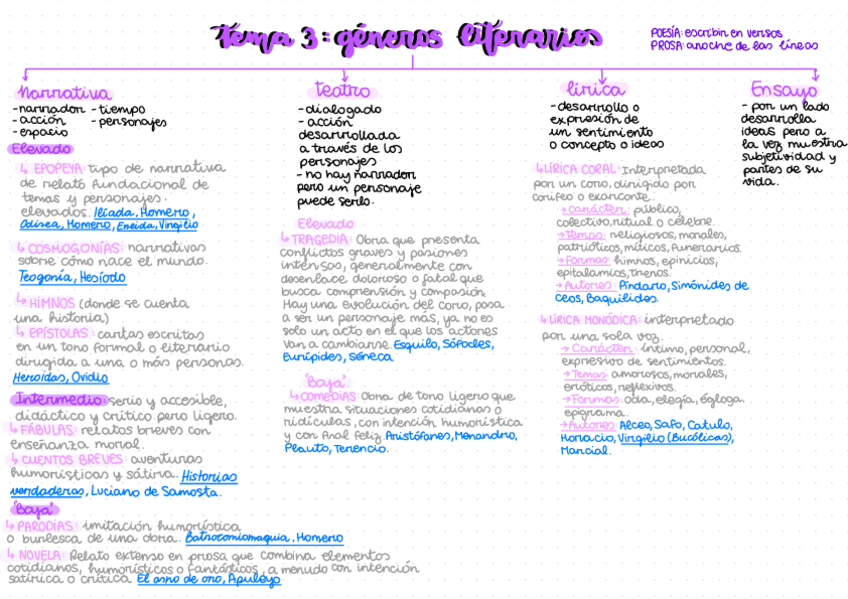 Tema 3: géneros literarios
POESÍA: escribir en versos
PROSA: anoche de las líneas
Narrativa
-narrador -tiempo
-acción -personajes
-espacio
Elevado
↳ EPOPEYA: tipo de narrativa
de relato fundacional de
temas y personajes
elevados. Ilíada, Homero,
Odisea, Homero, Eneida, Virgilio
↳ COSMOGONÍAS: narrativas
sobre cómo nace el mundo.
Teogonía, Hesíodo
↳ HIMNOS (donde se cuenta
una historia)
↳ EPÍSTOLAS: cartas escritas
en un tono formal o literario
dirigida a una o más personas.
Heroidas, Ovidio
Intermedio: serio y accesible,
didáctico y crítico pero ligero.
↳ FÁBULAS: relatos breves con
enseñanza moral.
↳ CUENTOS BREVES: aventuras
humorísticas y sátira. Historias
verdaderas, Luciano de Samosta.
"Baja"
↳ PARODIAS: imitación humorística
o burlesca de una obra. Batrocomiomaquia, Homero
↳ NOVELA: Relato extenso en prosa que combina elementos
cotidianos, humorísticos o fantásticos, a menudo con intención
satírica o crítica El asno de oro, Apuleyo
Teatro
-dialogado
- acción
desarrollada
a través de los
personajes
- no hay narrador
pero un personaje
puede serlo.
Elevado
↳ TRAGEDIA: Obra que presenta
conflictos graves y pasiones
intensas, generalmente con
desenlace doloroso o fatal que
busca comprensión y compasión.
Hay una evolución del coro, pasa
a ser un personaje más, ya no es
solo un acto en el que los actores
van a cambiarse. Esquilo, Sófocles,
Eurípides, Séneca
"Baja"
↳ COMEDIAS: Obra de tono ligero que
muestra situaciones cotidianas o
ridículas, con intención humorística
y con final feliz Aristófanes, Menandro,
Plauto, Terencio.
lírica
-desarrollo o
expresión de
un sentimiento
o concepto o ideas
↳LÍRICA CORAL: Interpretada
por un coro, dirigido por
corifeo o exarconte.
→Carácter: público,
colectivo, ritual o célebre.
→Temas: religiosos, morales,
patrióticos, míticos, funerarios.
→Formas: himnos, epinicios,
epitalamios, trenos.
→Autores: Píndaro, Simónides de
Ceos, Baquílides.
↳LÍRICA MONÓDICA: interpretado
por una sola voz.
→ Carácter: íntimo, personal,
expresivo de sentimientos.
→Temas: amorosos, morales,
eróticos, reflexivos.
→Formas: oda, elegía, égloga.
epigrama.
→Autores Alceo, Safo, Catulo,
Horacio, Virgilio (Bucólicas),
Marcial.
Ensayo
- por un lado
desarrolla
ideas pero a
la vez muestra
subjetividad y
partes de su
vida.